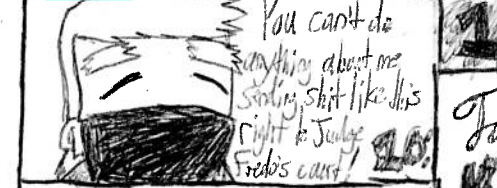 You can't do
anything about me
sending shit like this
right to Judge
Fredo's court!